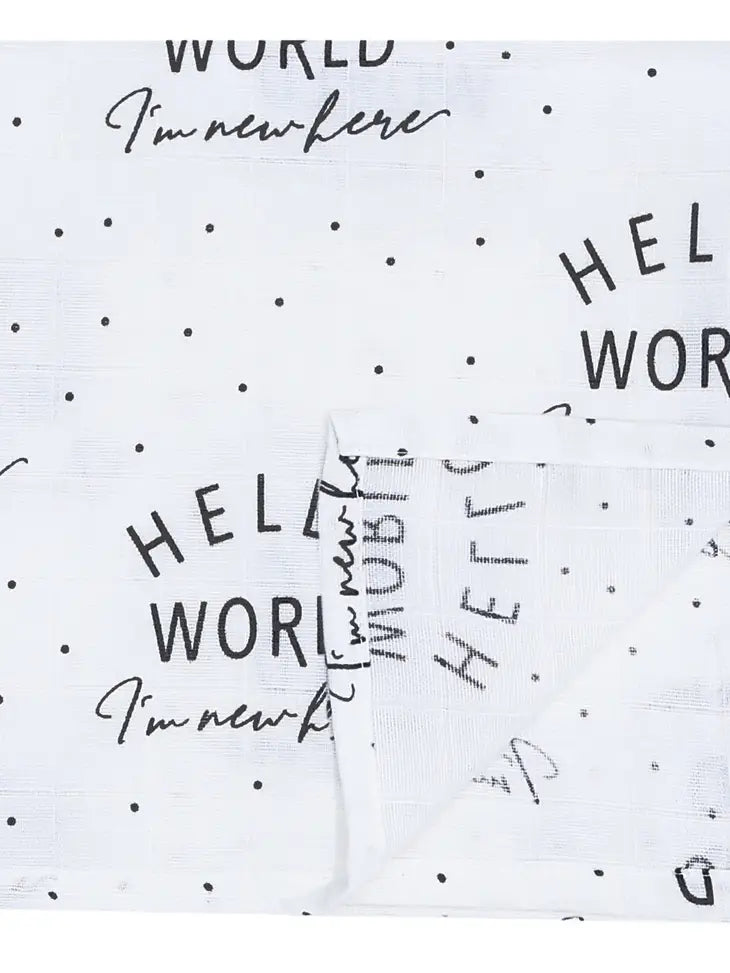 WORLD
I'm new here
HEL
WOR
HELL
WORL
I'm new h
I'm new he
WORL
HELLO
I'm